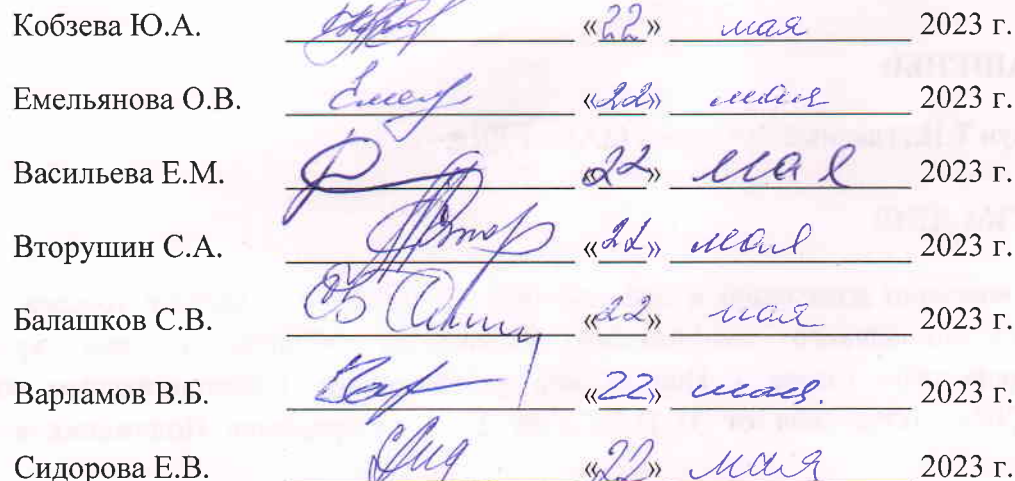 Кобзева Ю.А. «22» мая 2023 г.
Емельянова О.В. «22» мая 2023 г.
Васильева Е.М. «22» мая 2023 г.
Вторушин С.А. «22» мая 2023 г.
Балашков С.В. «22» мая 2023 г.
Варламов В.Б. «22» мая. 2023 г.
Сидорова Е.В. «22» мая 2023 г.